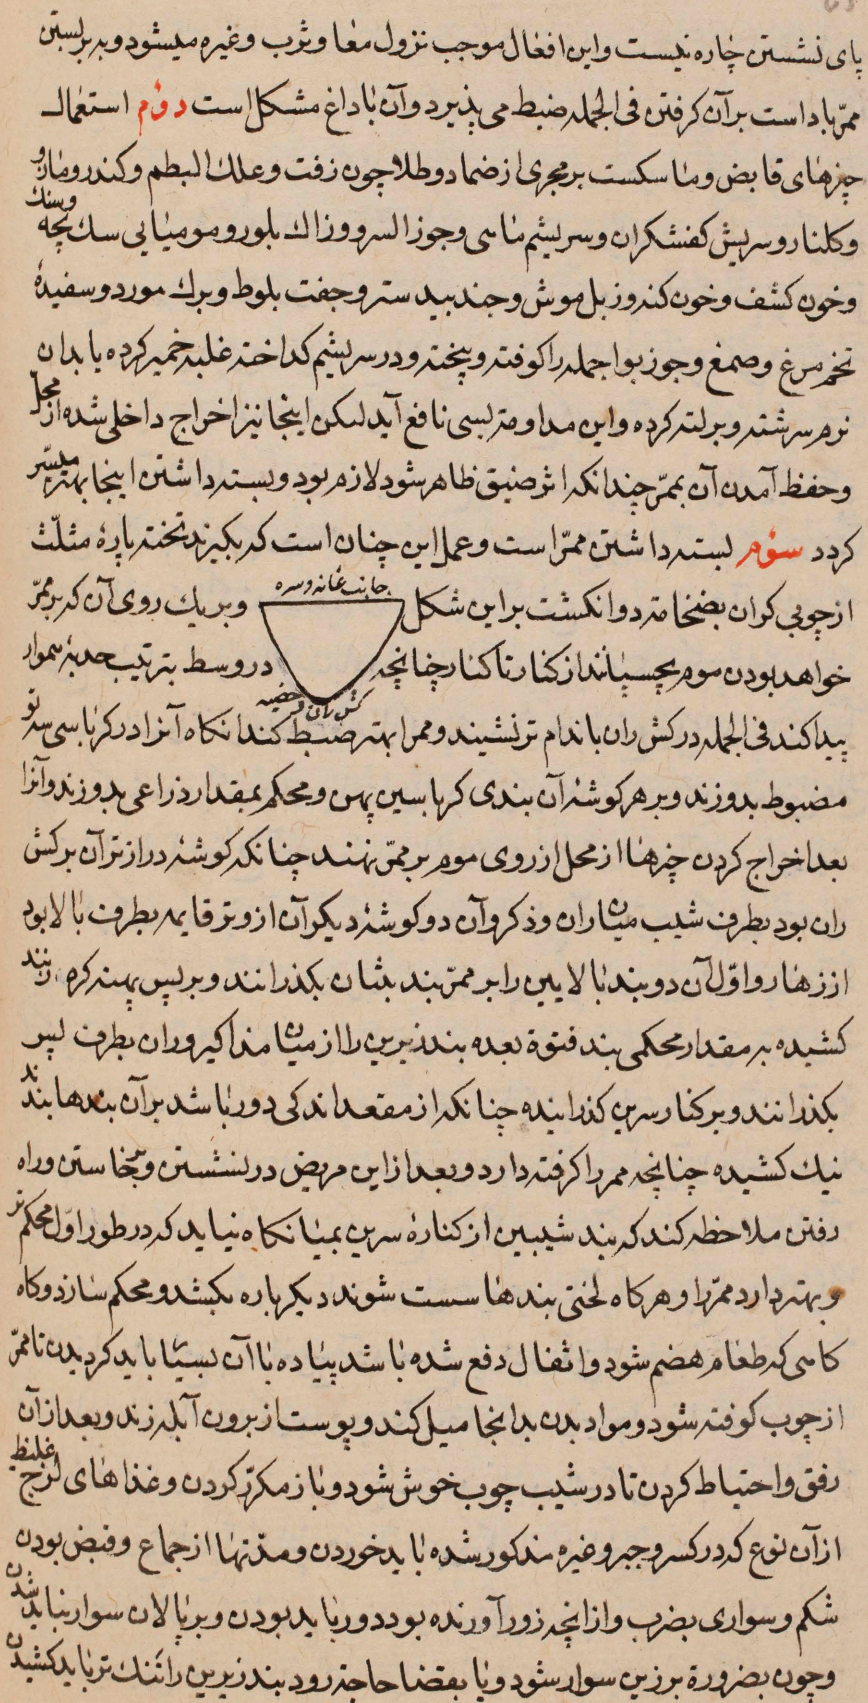 پای نشستن چاره نیست و این افعال موجب نزول معا و ثرب و غیره میشود و به بر بستن
ممر باد است بر آن کرفتن فی الجمله ضبط می پذیرد و آن باداغ مشکل است دوم استعمال
چیزهای قابض و ماسکست بر مجری از ضماد و طلا چون زفت و علك البطم و کندر و مازو
و کلنار و سریش کفشکران و سریشم ماهی و جوز السرو و زاك بلور و مومیایی سك و سنك بچه
و خون کشف و خون کنه و زبل موش و جند بیدستر و جفت بلوط و برك مورد و سفیدهٔ
تخم مرغ و صمغ و جوز بوا جمله را کوفته و پخته و در سریشم کداخته غلبه خمیر کرده یا بدان
نرم سرشته و بر لته کرده و این مداومة بسی نافع آید لیکن اینجا نیز اخراج داخلی شده از محل
و حفظ آمدن آن بممر چندانکه اثر ضیق ظاهر شود لازم بود و بسته داشتن اینجا بهتر میسر
کردد سوم بسته داشتن ممر است و عمل این چنان است که بکیرند تخته پارهٔ مثلث
از چوبی کران بضخامة دو انکشت بر این شکل جانب عانه و سره و بر یك روی آن که بر ممر
خواهد بودن موم بچسپانند از کنار تا کنار چنانچه کش ران و خصیه در وسط بترتیب حدبهٔ هموار
پیدا کند فی الجمله در کش ران باندام تر نشیند و ممر را بهتر ضبط کند انکاه آنرا در کرباسی سه تو
مضبوط بدوزند و بر هر کوشهٔ آن بندی کرباسین پهن و محکم بمقدار ذراعی بدوزند و آنرا
بعد اخراج کردن چیزها از محل از روی موم بر ممر نهند چنانکه کوشهٔ درازتر آن بر کش
ران بود بطرف شیب میان ران و ذکر و آن دو کوشهٔ دیکر آن از وتر قایمه بطرف بالا بود
از زهار و اول آن دو بند بالایین را بر ممر بند بشان بکذرانند و بر پس پهنه کره زنند
کشیده به مقدار محکمی بند فتوة بعده بند زیرین را از میان مذاکیر و ران بطرف پس
بکذرانند و بر کنار سرین کذرانیده چنانکه از مقعد اندکی دور باشد بر آن بندها بندند
نیك کشیده چنانچه ممر را کرفته دارد و بعد از این مریض در نشستن و برخاستن و راه
رفتن ملاحظه کند که بند شیبین از کنارهٔ سرین بمیانکاه نیاید که در طور اول محکم تر
و بهتر دارد ممر را و هر کاه لختی بندها سست شوند دیکر باره بکشد و محکم سازد و کاه
کاهی که طعام هضم شود و اثفال دفع شده باشد پیاده با آن بسیار باید کردیدن تا ممر
از چوب کوفته شود و مواد بدن بدانجا میل کند و پوست از برون آبله زند و بعد از آن
رفق و احتیاط کردن تا در شیب چوب خوش شود و باز مکرر کردن و غذاهای غلیظ لزج
از آن نوع که در کسر و جبر و غیره مذکور شده باید خوردن و مدتها از جماع و قبض بودن
شکم و سواری بضرب و از انچه زور آورنده بود دور باید بودن و بر پالان سوار نباید شدن
و چون بضرورة بر زین سوار شود و یا بقضا حاجة رود بند زیرین را تنك تر باید کشیدن